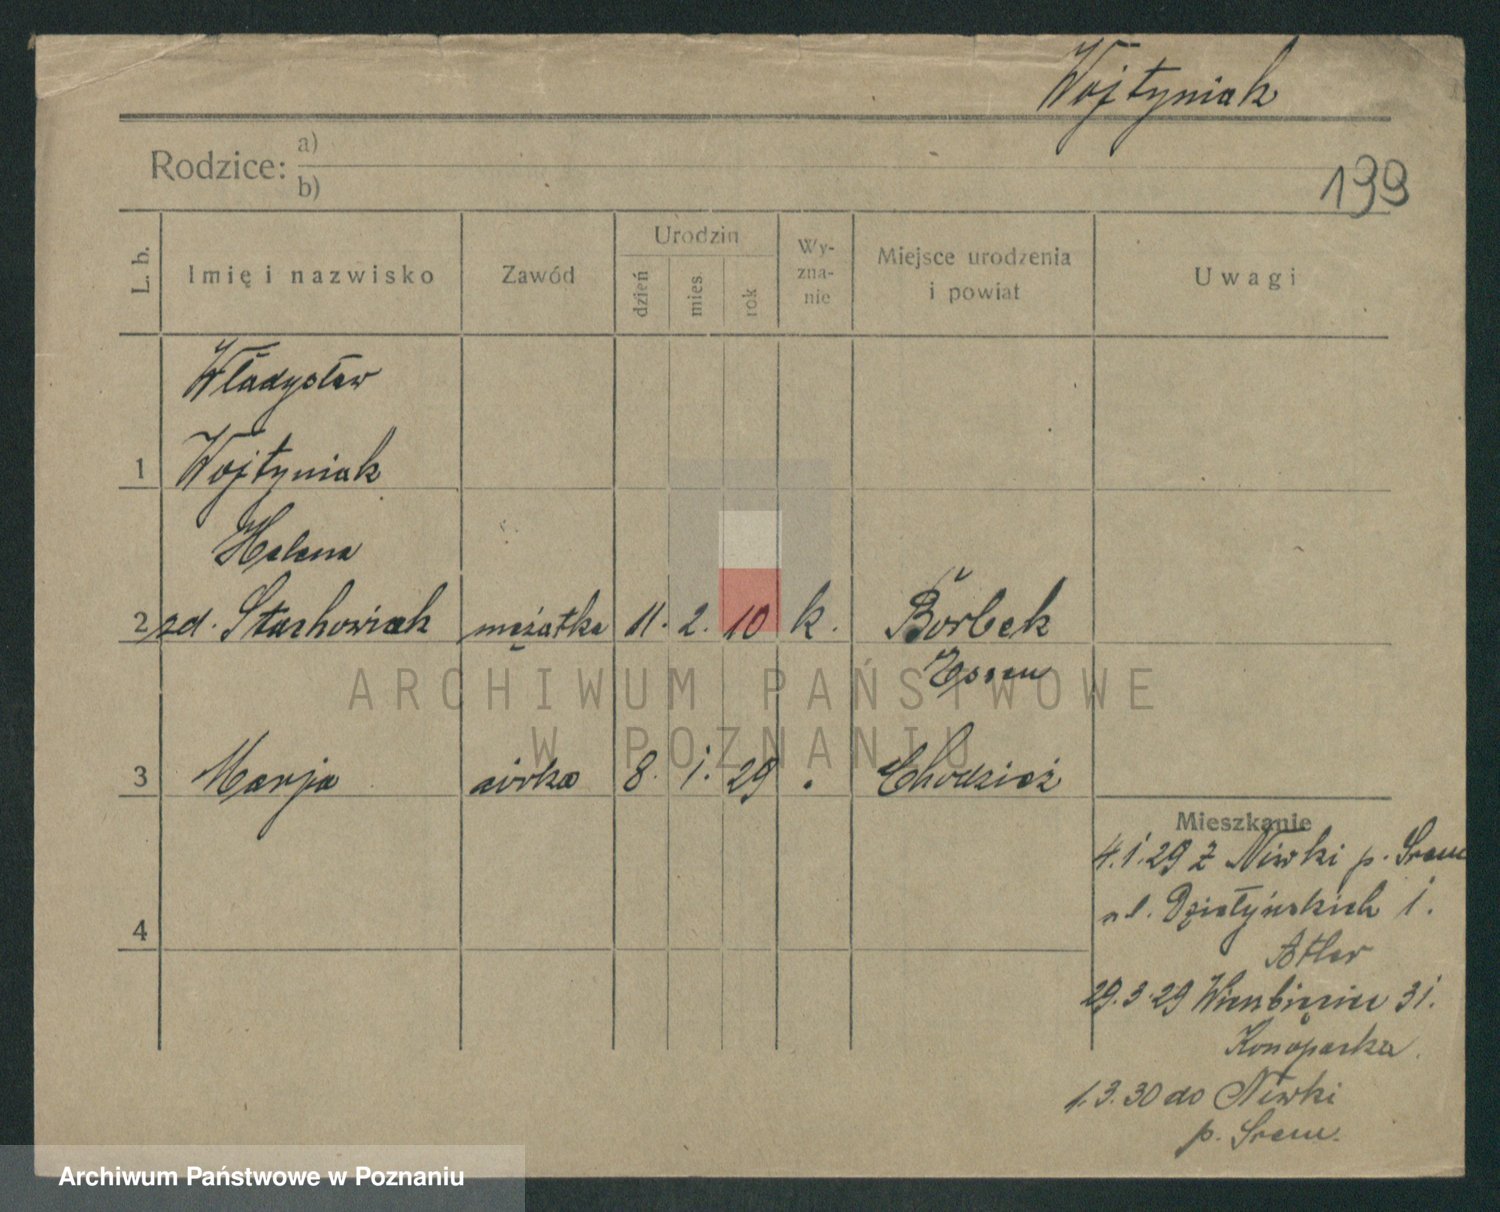 Wojtyniak
199
Rodzice: a)
b)
L. b.
Imię i nazwisko
Zawód
Urodzin
dzień
mies.
rok
Wy-
zna-
nie
Miejsce urodzenia
i powiat
Uwagi
Władysław
1 Wojtyniak
Helena
2 zd. Stachowiak mężatka 11. 2. 10 k. Borbek
Essen
3 Marja córka 8. 1. 29 Chodzież
4
Mieszkanie
4.1.29 z Niwki p. Śrem
ul. Działyńskich 1.
29.3.29 31.
Konopacka
1.3.30 do Niwki
p. Śrem.
ARCHIWUM PAŃSTWOWE
W POZNANIU
Archiwum Państwowe w Poznaniu